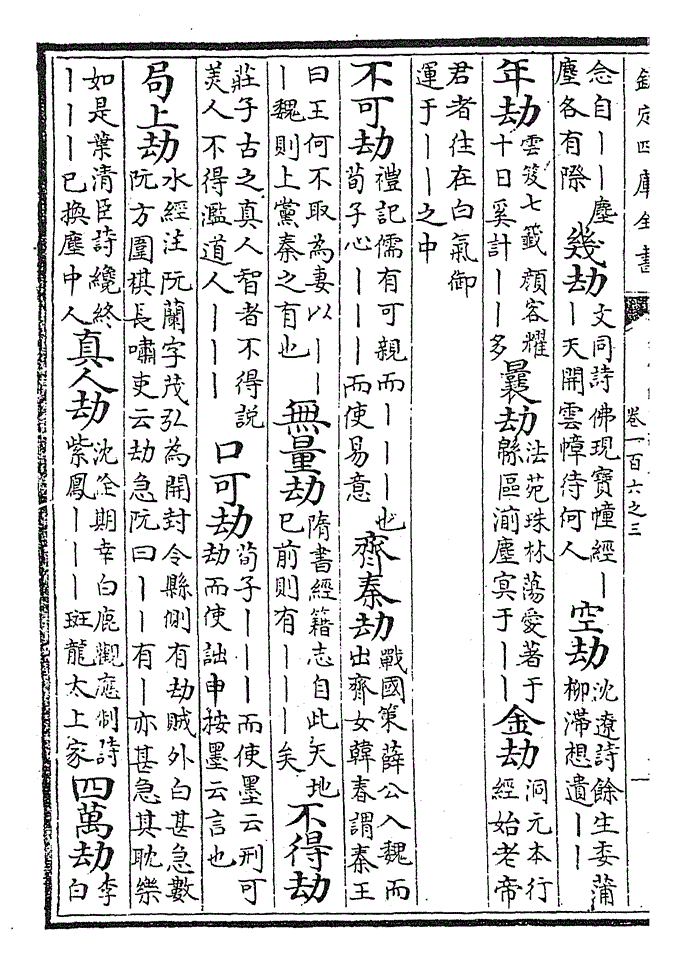 欽定四庫全書 卷一百六之三 一
念自丨丨塵塵各有際 幾劫 文同詩佛現寶幢經丨丨天開雲幛待何人 空劫 沈遼詩餘生委蒲柳滯想遺丨丨
年劫 雲笈七籤顔客耀十日奚計丨丨多 曩劫 法苑珠林蕩愛著于緜區湔塵寞于丨丨 金劫 洞元本行經始老帝
君者住在白氣御運于丨丨之中
不可劫 禮記儒有可親而丨丨丨也荀子心丨丨丨而使易意 齊秦劫 戰國策薛公入魏而出齊女韓春謂秦王
曰王何不取為妻以丨丨丨魏則上黨秦之有也 無量劫 隋書經籍志自此天地已前則有丨丨丨矣 不得劫
莊子古之真人智者不得說美人不得濫道人丨丨丨 口可劫 荀子丨丨丨而使墨云刑可劫而使詘申按墨云言也
局上劫 水經注阮蘭字茂弘為開封令縣側有劫賊外白甚急數阮方圍棋長嘯吏云劫急阮曰丨丨有丨亦甚急其耽樂
如是葉清臣詩纔終丨丨丨已換塵中人 真人劫 沈佺期幸白鹿觀應制詩紫鳳丨丨丨斑龍太上家 四萬劫 李白